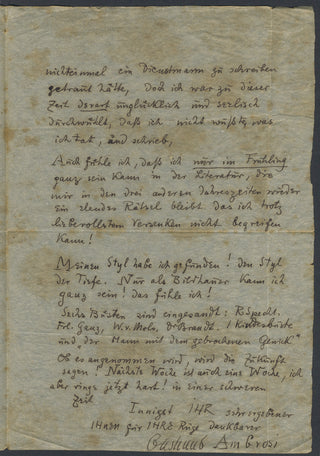 nichteinmal ein Dienstmann zu schreiben
getraut hätte, Doch ich war zu dieser
Zeit derart unglücklich und seelisch
durchwühlt, daß ich nicht wußte, was
ich tat, und schrieb,
Auch fühle ich, daß ich nur im Frühling
ganz sein kann in der Literatur, die
mir in den drei anderen Jahreszeiten wieder
ein elendes Rätsel bleibt das ich trotz
liebevollstem Versenken nicht begreifen
kann!
Meinen Styl habe ich gefunden! den Styl
der Tiefe. Nur als Bildhauer kann ich
ganz sein! das fühle ich!
Sechs Büsten sind eingesandt: R. Specht.
Frl. Ganz, W. v. Molo, Dr Brandt. 1 Kinderbüste
und „der Mann mit dem gebrochenen Genick"
Ob es angenommen wird, wird die Zukunft
sagen! Nächste Woche ist auch eine Woche, ich
aber ringe jetzt hart! in einer schweren
Zeit
Innigst IHR sehr ergebener
IHNEN für IHRE Güte dankbarer
Gustinus Ambrosi